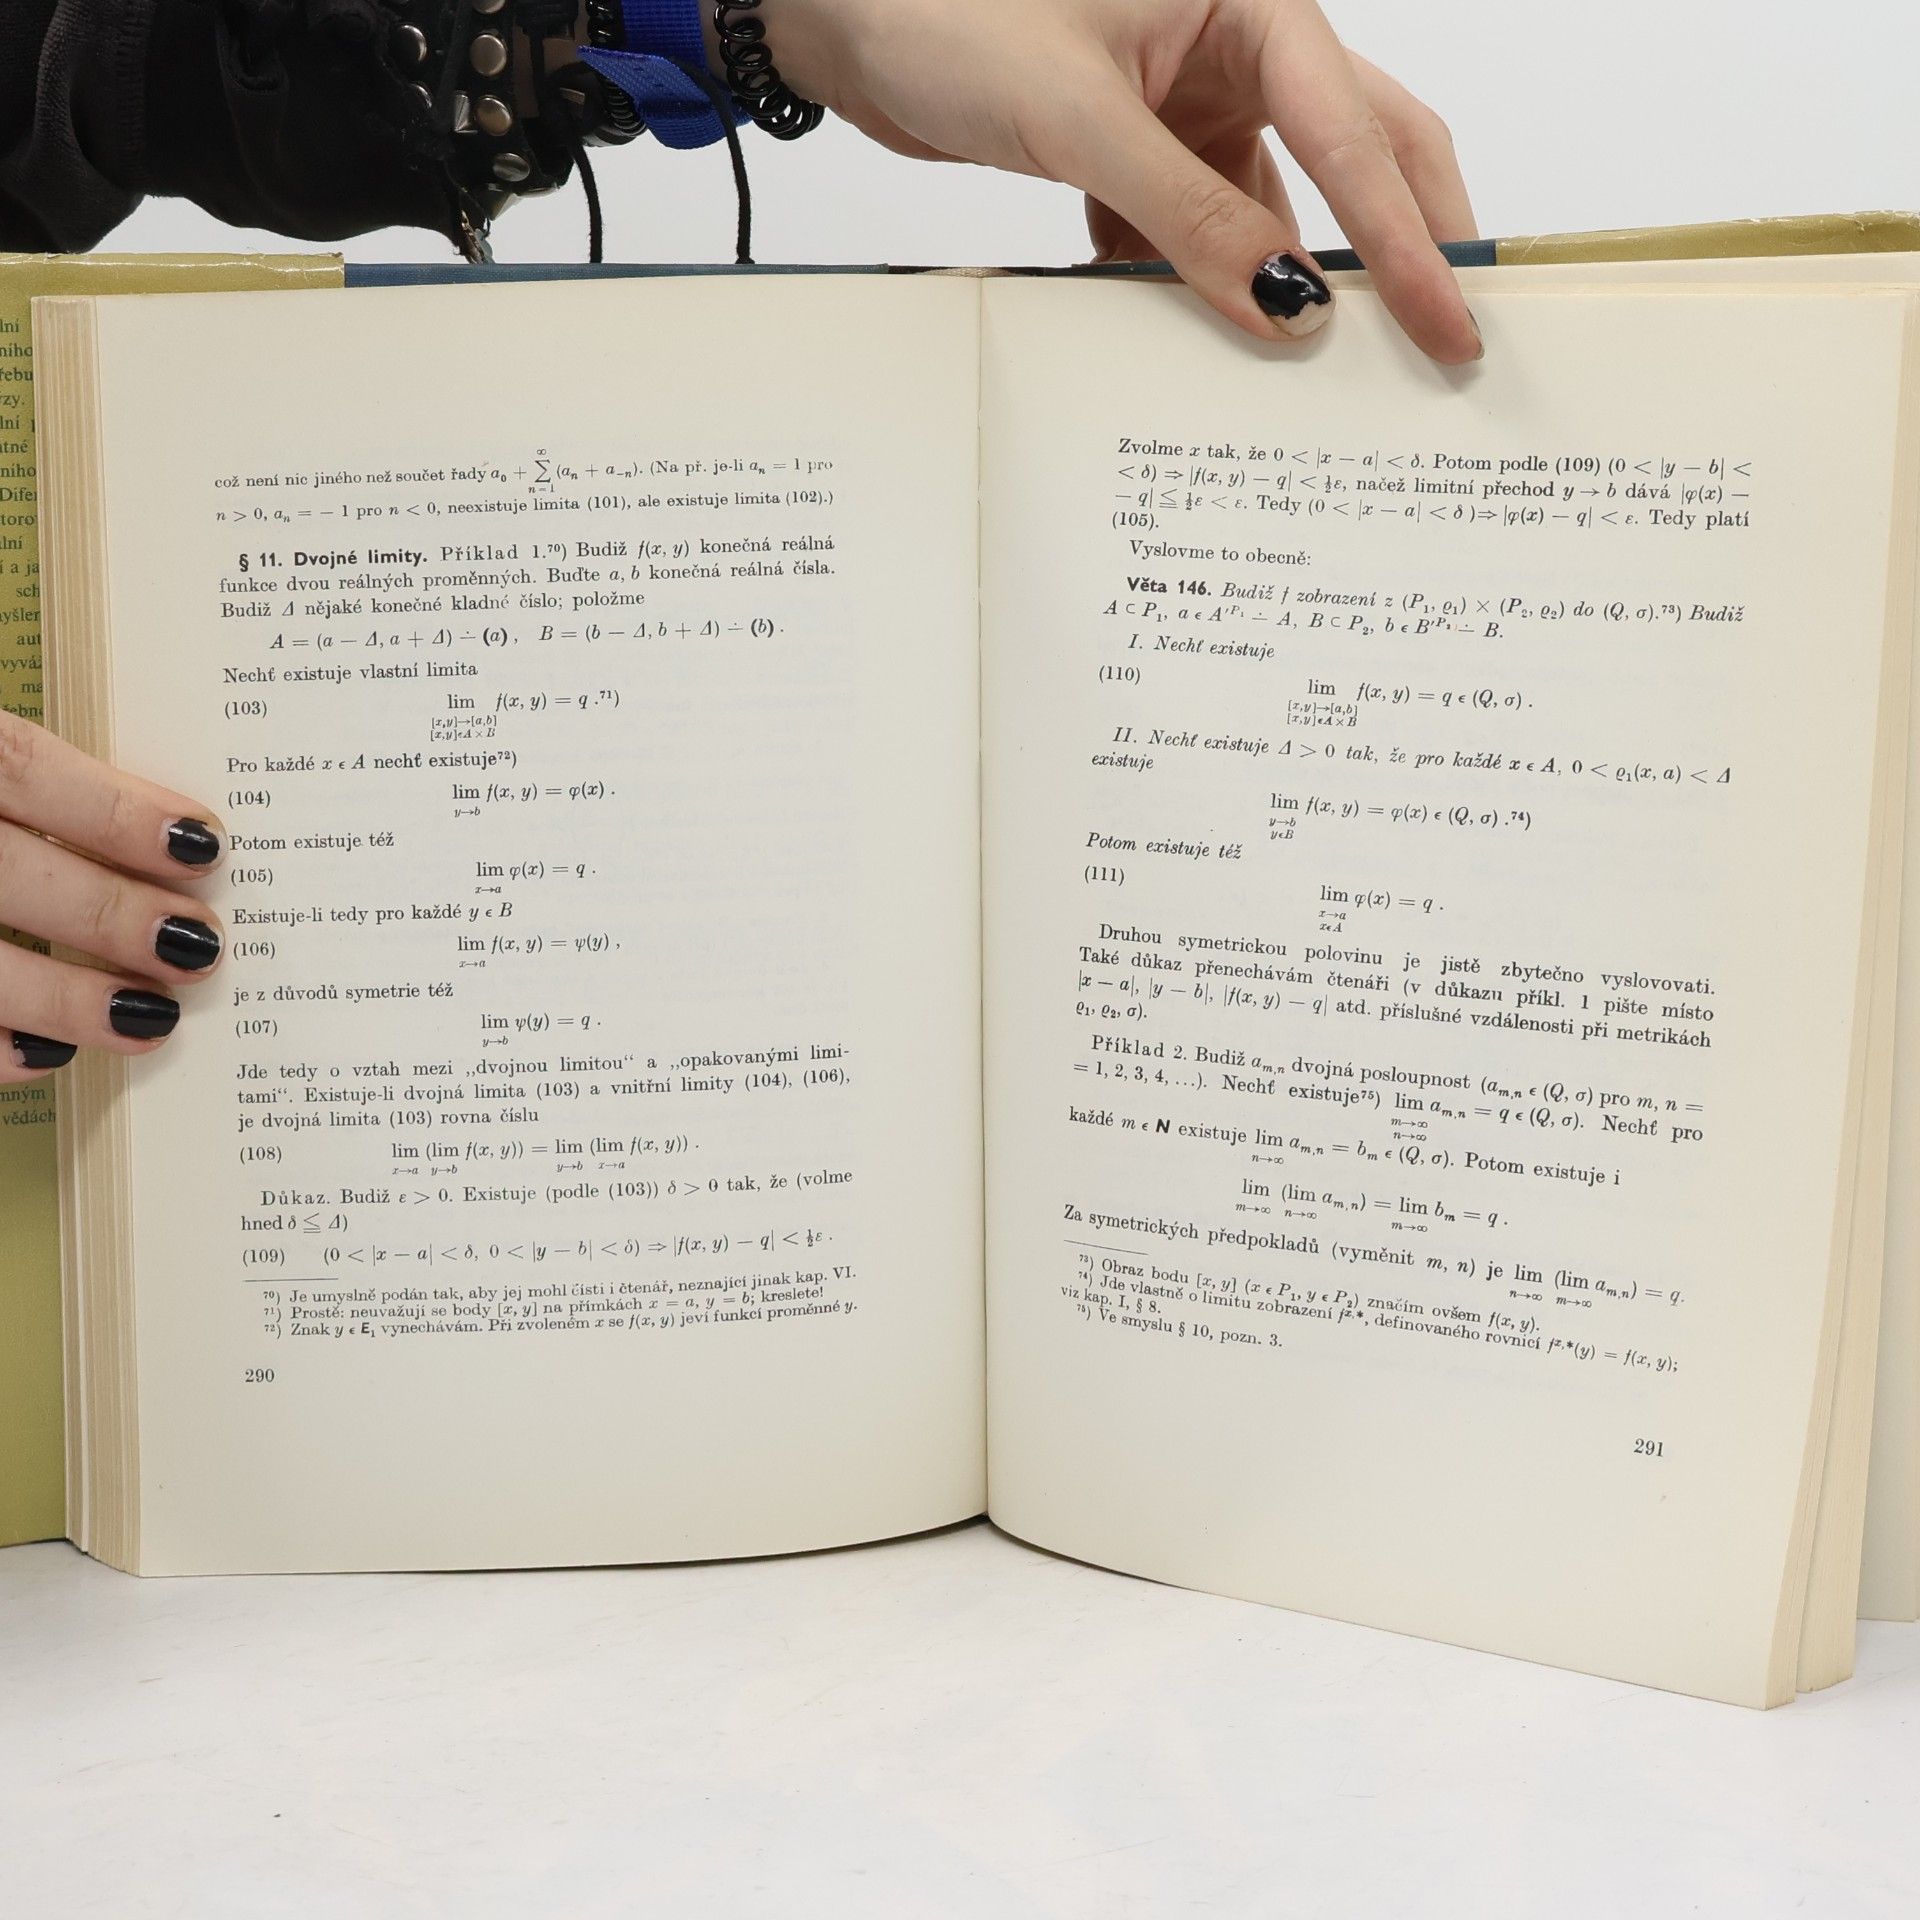 což není nic jiného než součet řady a₀ + ∑_{n=1}^{∞} (aₙ + a₋ₙ). (Na př. je-li aₙ = 1 pro
n > 0, aₙ = − 1 pro n < 0, neexistuje limita (101), ale existuje limita (102).)
§ 11. Dvojné limity. Příklad 1.⁷⁰) Budiž f(x, y) konečná reálná
funkce dvou reálných proměnných. Buďte a, b konečná reálná čísla.
Budiž Δ nějaké konečné kladné číslo; položme
A = (a − Δ, a + Δ) ∸ (a), B = (b − Δ, b + Δ) ∸ (b).
Nechť existuje vlastní limita
(103) lim_{[x,y]→[a,b], [x,y]ϵA×B} f(x, y) = q .⁷¹)
Pro každé x ϵ A nechť existuje⁷²)
(104) lim_{y→b} f(x, y) = φ(x) .
Potom existuje též
(105) lim_{x→a} φ(x) = q .
Existuje-li tedy pro každé y ϵ B
(106) lim_{x→a} f(x, y) = ψ(y) ,
je z důvodů symetrie též
(107) lim_{y→b} ψ(y) = q .
Jde tedy o vztah mezi „dvojnou limitou“ a „opakovanými limi-
tami“. Existuje-li dvojná limita (103) a vnitřní limity (104), (106),
je dvojná limita (103) rovna číslu
(108) lim_{x→a} (lim_{y→b} f(x, y)) = lim_{y→b} (lim_{x→a} f(x, y)) .
Důkaz. Budiž ε > 0. Existuje (podle (103)) δ > 0 tak, že (volme
hned δ ≦ Δ)
(109) (0 < |x − a| < δ, 0 < |y − b| < δ) ⇒ |f(x, y) − q| < ½ε .
⁷⁰) Je umyslně podán tak, aby jej mohl čísti i čtenář, neznající jinak kap. VI.
⁷¹) Prostě: neuvažují se body [x, y] na přímkách x = a, y = b; kreslete!
⁷²) Znak y ϵ E₁ vynechávám. Při zvoleném x se f(x, y) jeví funkcí proměnné y.
290
Zvolme x tak, že 0 < |x − a| < δ. Potom podle (109) (0 < |y − b| <
< δ) ⇒ |f(x, y) − q| < ½ε, načež limitní přechod y → b dává |φ(x) −
− q| ≦ ½ε < ε. Tedy (0 < |x − a| < δ )⇒ |φ(x) − q| < ε. Tedy platí
(105).
Vyslovme to obecně:
Věta 146. Budiž f zobrazení z (P₁, ϱ₁) × (P₂, ϱ₂) do (Q, σ).⁷³) Budiž
A ⊂ P₁, a ϵ A′^{P₁} ∸ A, B ⊂ P₂, b ϵ B′^{P₂} ∸ B.
I. Nechť existuje
(110) lim_{[x,y]→[a,b], [x,y]ϵA×B} f(x, y) = q ϵ (Q, σ) .
II. Nechť existuje Δ > 0 tak, že pro každé x ϵ A, 0 < ϱ₁(x, a) < Δ
existuje
lim_{y→b, yϵB} f(x, y) = φ(x) ϵ (Q, σ) .⁷⁴)
Potom existuje též
(111) lim_{x→a, xϵA} φ(x) = q .
Druhou symetrickou polovinu je jistě zbytečno vyslovovati.
Také důkaz přenechávám čtenáři (v důkazu příkl. 1 pište místo
|x − a|, |y − b|, |f(x, y) − q| atd. příslušné vzdálenosti při metrikách
ϱ₁, ϱ₂, σ).
Příklad 2. Budiž a_{m,n} dvojná posloupnost (a_{m,n} ϵ (Q, σ) pro m, n =
= 1, 2, 3, 4, …). Nechť existuje⁷⁵) lim_{m→∞, n→∞} a_{m,n} = q ϵ (Q, σ). Nechť pro
každé m ϵ N existuje lim_{n→∞} a_{m,n} = b_m ϵ (Q, σ). Potom existuje i
lim_{m→∞} (lim_{n→∞} a_{m,n}) = lim_{m→∞} b_m = q .
Za symetrických předpokladů (vyměnit m, n) je lim_{n→∞} (lim_{m→∞} a_{m,n}) = q.
⁷³) Obraz bodu [x, y] (x ϵ P₁, y ϵ P₂) značím ovšem f(x, y).
⁷⁴) Jde vlastně o limitu zobrazení f^{x,*}, definovaného rovnicí f^{x,*}(y) = f(x, y);
viz kap. I, § 8.
⁷⁵) Ve smyslu § 10, pozn. 3.
291